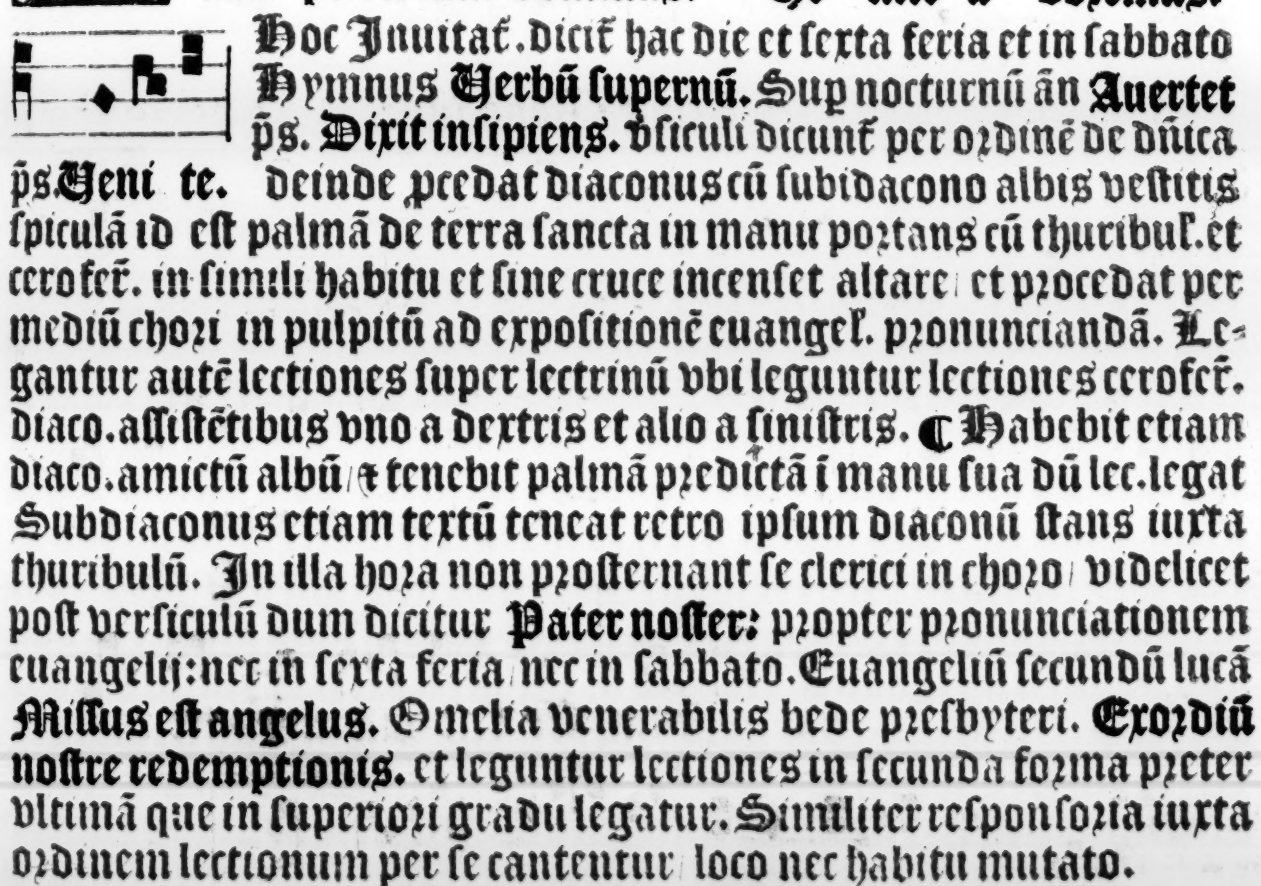 Hoc Inuitat̃. dicit̃ hac die et sexta feria et in sabbato
Hymnus Verbũ supernũ. Suꝑ nocturnũ ãn Auertet
p̃s. Dixit insipiens. v̉siculi dicunt̃ per ordinẽ de dñica
p̃s. Veni te. deinde ꝓcedat diaconus cũ subidacono albis vestitis
spiculã id est palmã de terra sancta in manu portans cũ thuribul̃. et
cerofer̃. in simili habitu et sine cruce incenset altare / et procedat per
mediũ chori in pulpitũ ad expositionẽ euangel̃. pronunciandã. Le⸗
gantur autẽ lectiones super lectrinũ vbi leguntur lectiones cerofer̃.
diaco. assistẽtibus vno a dextris et alio a sinistris. ¶ Habebit etiam
diaco. amictũ albũ / ⁊ tenebit palmã predictã ĩ manu sua dũ lec. legat
Subdiaconus etiam textũ teneat retro ipsum diaconũ stans iuxta
thuribulũ. In illa hora non prosternant se clerici in choro / videlicet
post versiculũ dum dicitur Pater noster: propter pronunciationem
euangelij: nec in sexta feria / nec in sabbato. Euangeliũ secundũ lucã
Missus est angelus. Omelia venerabilis bede presbyteri. Exordiũ
nostre redemptionis. et leguntur lectiones in secunda forma preter
vltimã que in superiori gradu legatur. Similiter responsoria iuxta
ordinem lectionum per se cantentur / loco nec habitu mutato.